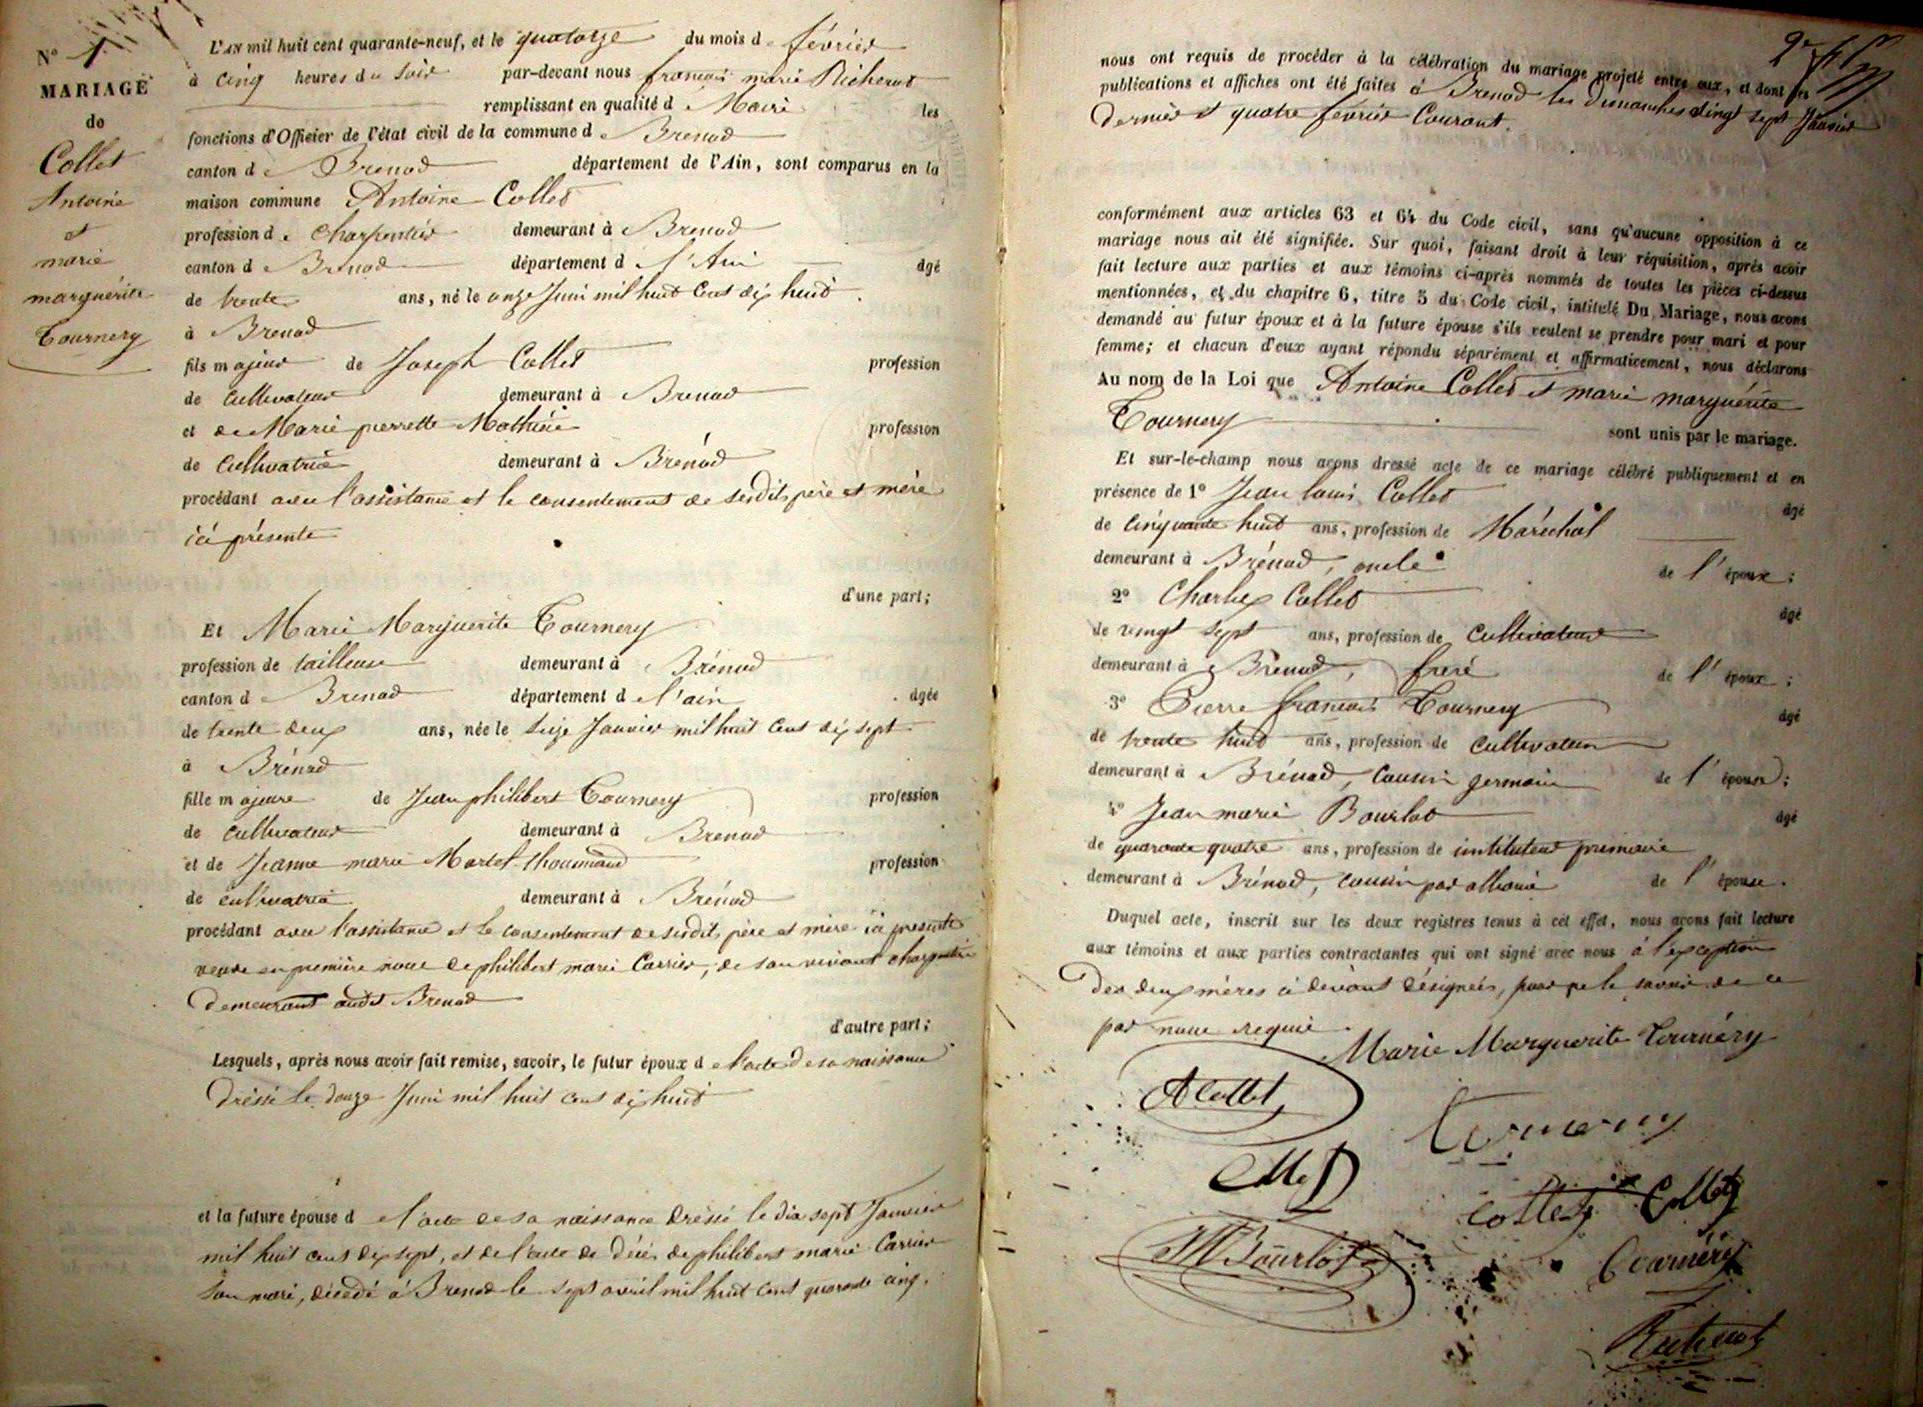 N° 1
MARIAGE
de
Collet
Antoine
et
marie
marguérite
Tournery
L'AN mil huit cent quarante-neuf, et le quatorze du mois d février
à cinq heures du soir par-devant nous francois marie Richerot
remplissant en qualité d Maire les
fonctions d'Officier de l'état civil de la commune d Brenod
canton d Brenod département de l'Ain, sont comparus en la
maison commune Antoine Collet
profession d Charpentier demeurant à Brenod
canton d Brenod département d l'Ain âgé
de trente ans, né le onze Juin mil huit cent dix huit
à Brenod
fils majeur de Joseph Collet profession
de cultivateur demeurant à Brenod
et de Marie pierrette Mathieu profession
de cultivatrice demeurant à Brénod
procédant avec l'assistance et le consentement de sesdits père et mère
ici présente
d'une part;
Et Marie Marguerite Tournery
profession de tailleuse demeurant à Brénod
canton d Brenod département d l'ain âgée
de trente deux ans, née le seize Janvier mil huit cent dix sept
à Brénod
fille majeure de Jean philibert Tournery profession
de cultivateur demeurant à Brenod
et de Jeanne marie Martel-thoumand profession
de cultivatrice demeurant à Brénod
procédant avec l'assistance et le consentement de sesdits père et mère ici presente
veuve en première noce de philibert marie Carrier, de son vivant charpentier
demeurant audit Brenod
d'autre part;
Lesquels, après nous avoir fait remise, savoir, le futur époux d e l'acte de sa naissance
dréssé le douze Juin mil huit cent dix huit
et la future épouse d e l'acte de sa naissance dréssé le dix sept Janvier
mil huit cent dix sept, et de l'acte de décès de philibert marie Carrier
son mari, décédé à Brenod le sept avril mil huit cent quarante cinq.
nous ont requis de procéder à la célébration du mariage projeté entre eux, et dont les
publications et affiches ont été faites à Brenod les dimanches vingt sept Janvier
dernier et quatre février Courant.
conformément aux articles 63 et 64 du Code civil, sans qu'aucune opposition à ce
mariage nous ait été signifiée. Sur quoi, faisant droit à leur réquisition, après avoir
fait lecture aux parties et aux témoins ci-après nommés de toutes les pièces ci-dessus
mentionnées, et du chapitre 6, titre 5 du Code civil, intitulé Du Mariage, nous avons
demandé au futur époux et à la future épouse s'ils veulent se prendre pour mari et pour
femme; et chacun d'eux ayant répondu séparément et affirmativement, nous déclarons
Au nom de la Loi que Antoine Collet et marie marguérite
Tournery sont unis par le mariage.
Et sur-le-champ nous avons dressé acte de ce mariage célébré publiquement et en
présence de 1° Jean louis Collet âgé
de cinquante huit ans, profession de Maréchal
demeurant à Brénod, oncle de l'époux;
2° Charles Collet âgé
de vingt sept ans, profession de cultivateur
demeurant à Brénod, frere de l'époux;
3° Pierre francois Tournery âgé
de trente huit ans, profession de cultivateur
demeurant à Brénod, cousin germain de l'épouse;
4° Jean marie Bourlot âgé
de quarante quatre ans, profession de instituteur primaire
demeurant à Brénod, cousin par alliance de l'épouse.
Duquel acte, inscrit sur les deux registres tenus à cet effet, nous avons fait lecture
aux témoins et aux parties contractantes qui ont signé avec nous à l'exception
des deux mères ci devant désignées, pour ne le savoir de ce
par nous requis.
Marie Marguerite Tournéry
A Collet
Tournery
Collet
Collet Collet
JM Bourlot
Tournéry
Richerot